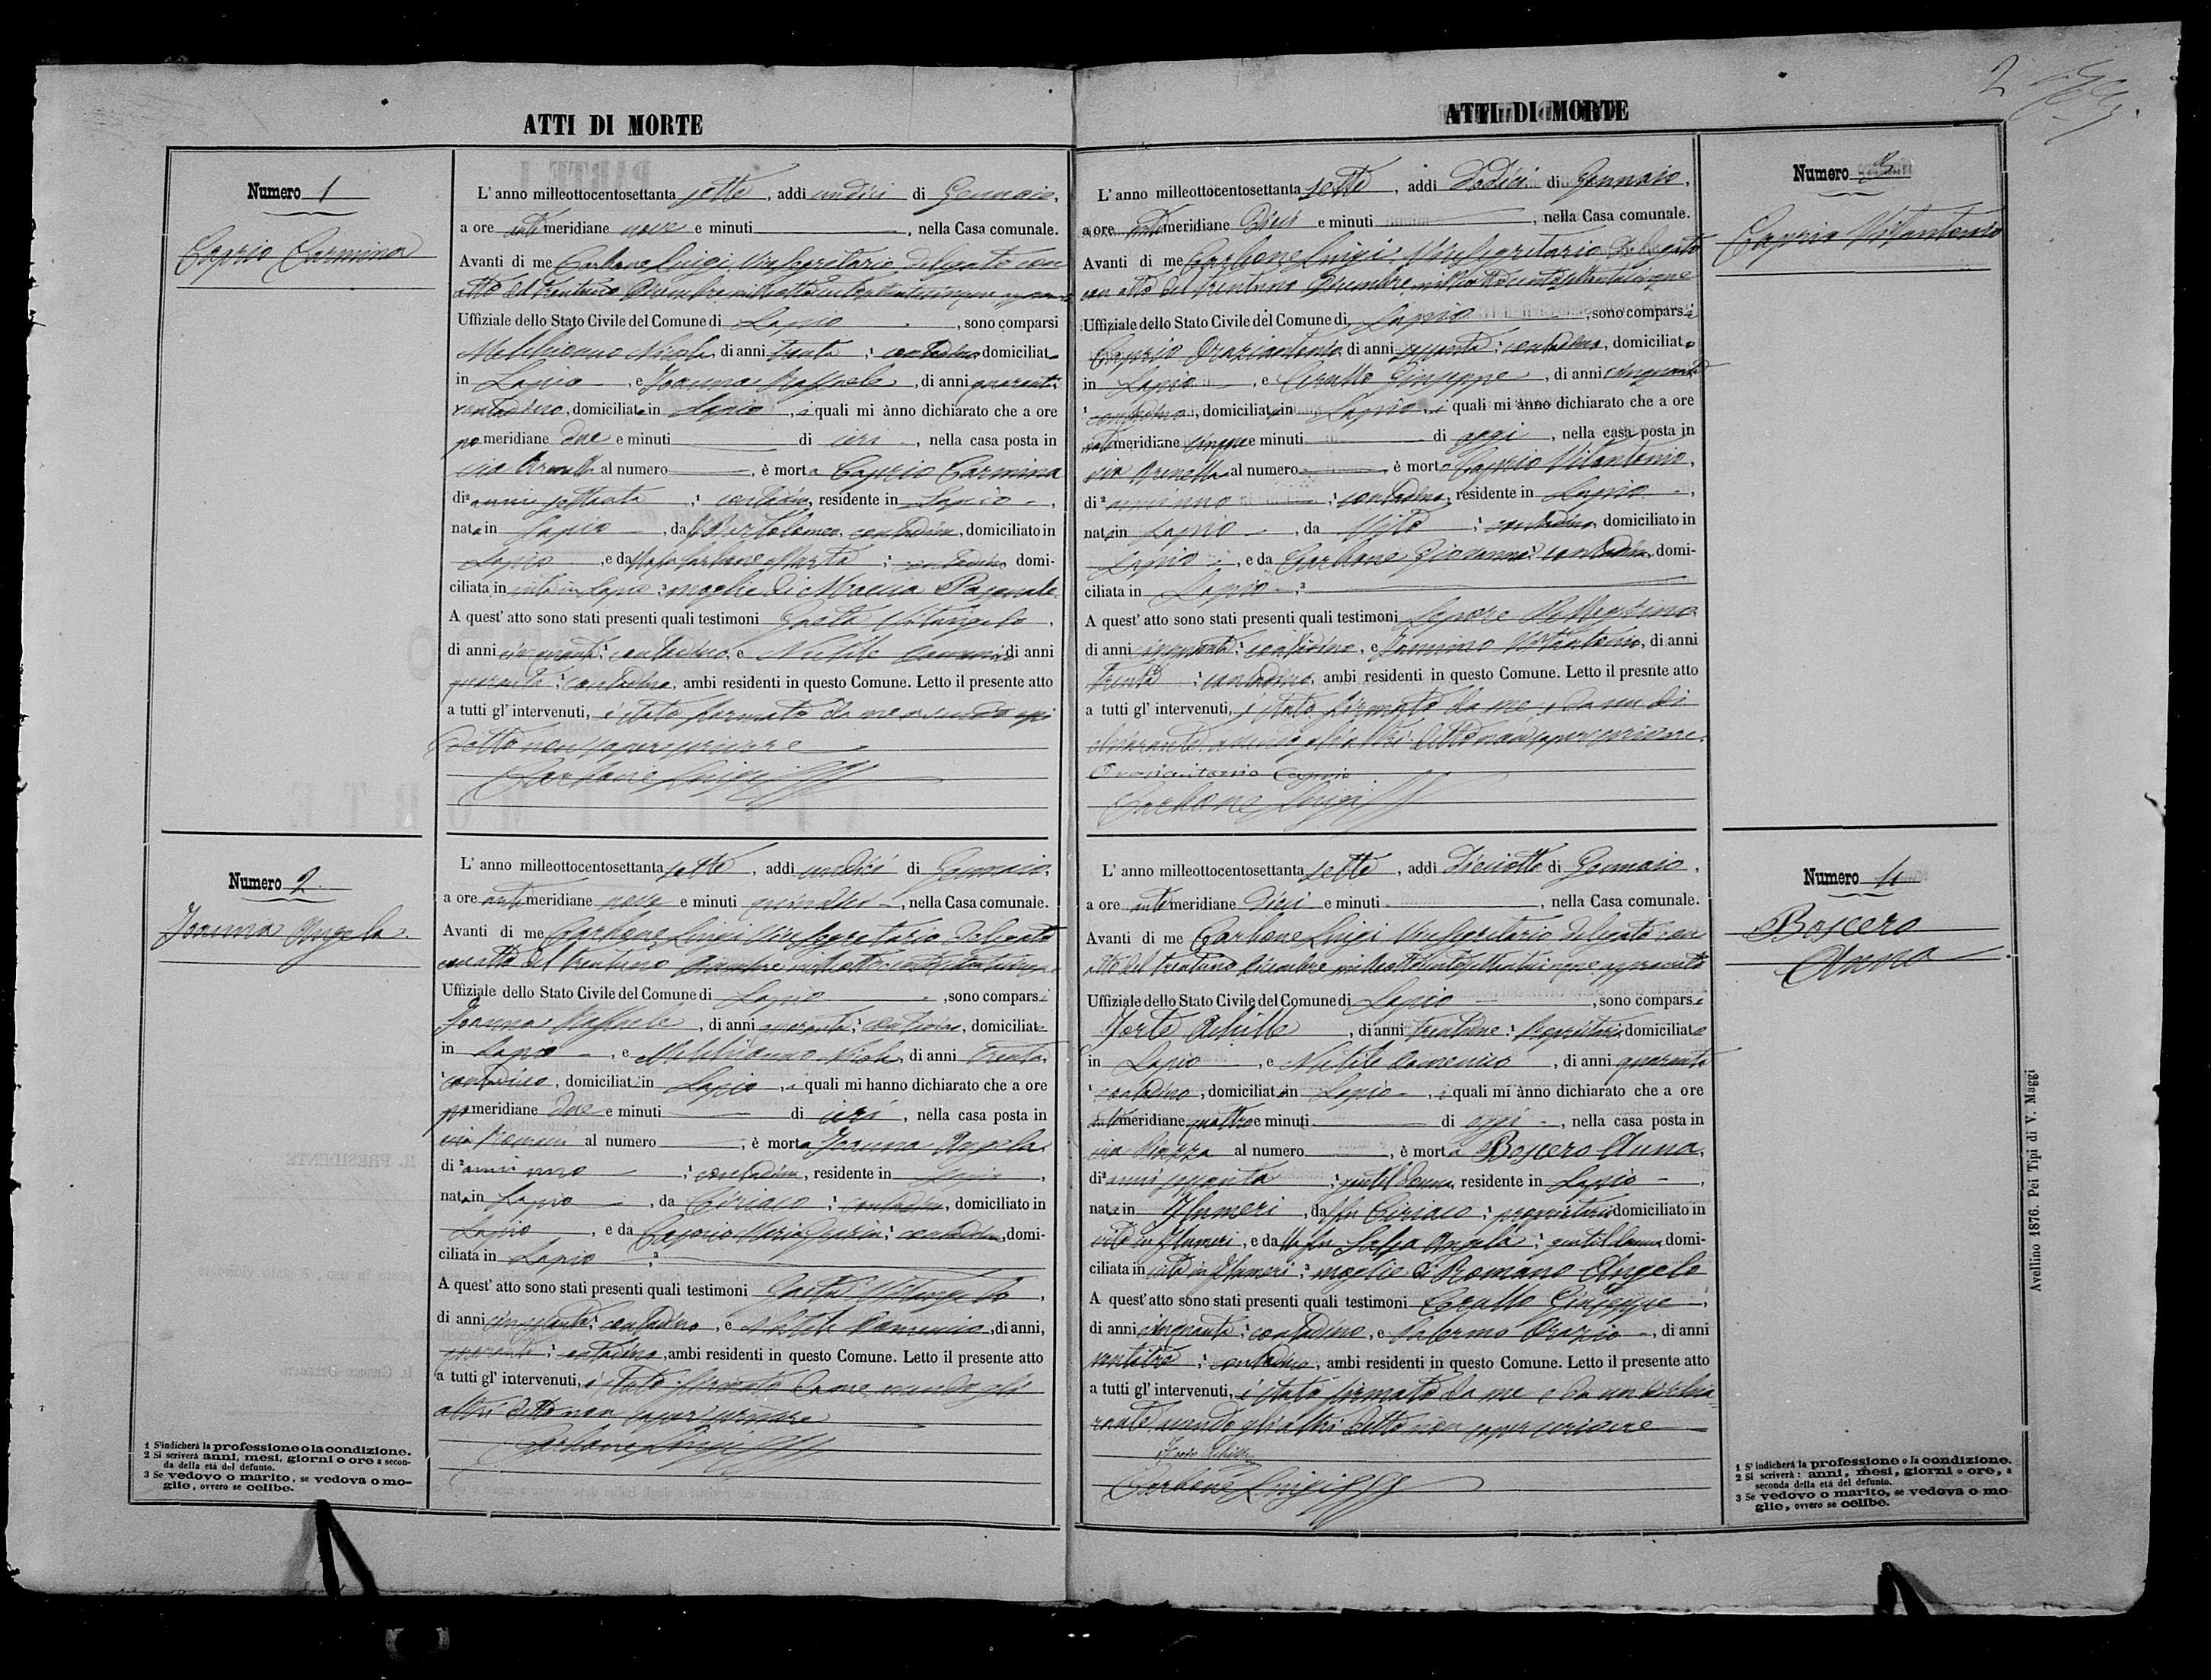 ATTI DI MORTE
Numero 1
Caprio Carmina
L' anno milleottocentosettanta sette, addi undici di Gennaio,
a ore antimeridiane nove e minuti, nella Casa comunale.
Avanti di me Carbone Luigi Vicesegretario delegato con
atto del trentuno Dicembre milleottocentosettantacinque approvato
Uffiziale dello Stato Civile del Comune di Lapio, sono comparsi
Melchionno Nicola, di anni trenta, contadino domiciliato
in Lapio, e Joanna Raffaele, di anni quaranta
contadino, domiciliato in Lapio, i quali mi ànno dichiarato che a ore
pomeridiane due e minuti di ieri, nella casa posta in
via al numero, è morta Caprio Carmina
di anni settanta, contadina, residente in Lapio,
nata in Lapio, da fu Bartolomeo, contadino, domiciliato in
Lapio, e da Marta, contadina domi-
ciliata in vita in Lapio, moglie di Pasquale
A quest' atto sono stati presenti quali testimoni Gaeta Vitangelo,
di anni cinquanta, contadino, e Nutile di anni
quaranta, contadino, ambi residenti in questo Comune. Letto il presente atto
a tutti gl' intervenuti, è stato firmato da me avendo essi
detto non saper scrivere
Carbone Luigi
Numero 2
Joanna Angela
L' anno milleottocentosettanta sette, addi undici di Gennaio,
a ore antimeridiane nove e minuti quindici, nella Casa comunale.
Avanti di me Carbone Luigi Vicesegretario delegato
con atto del trentuno Dicembre milleottocentosettantacinque
Uffiziale dello Stato Civile del Comune di Lapio, sono comparsi
Joanna Raffaele, di anni quaranta, contadino, domiciliato
in Lapio, e Melchionno Nicola, di anni trenta,
contadino, domiciliato in Lapio, i quali mi hanno dichiarato che a ore
pomeridiane due e minuti di ieri, nella casa posta in
via al numero, è morta Joanna Angela
di anni uno, contadina, residente in Lapio,
nata in Lapio, da Ciriaco, contadino, domiciliato in
Lapio, e da Caprio Maria Grazia, contadina, domi-
ciliata in Lapio
A quest' atto sono stati presenti quali testimoni Gaeta Vitangelo,
di anni cinquanta, contadino, e Nutile Domenico, di anni,
quaranta, contadino, ambi residenti in questo Comune. Letto il presente atto
a tutti gl' intervenuti, è stato firmato da me, avendo gli
altri detto non saper scrivere
Carbone Luigi
1 S'indicherà la professione o la condizione.
2 Si scriverà anni, mesi, giorni o ore a secon-
da della età del defunto.
3 Se vedovo o marito, se vedova o mo-
glie, ovvero se celibe.
ATTI DI MORTE
2
Numero 3
Caprio Vitantonio
L' anno milleottocentosettanta sette, addi dodici di Gennaio,
a ore antimeridiane dieci e minuti, nella Casa comunale.
Avanti di me Carbone Luigi Vicesegretario delegato
con atto del trentuno Dicembre milleottocentosettantacinque
Uffiziale dello Stato Civile del Comune di Lapio, sono comparsi
Caprio Oraziantonio, di anni sessanta, contadino, domiciliato
in Lapio, e Cirullo Giuseppe, di anni cinquanta
contadino, domiciliato in Lapio, i quali mi ànno dichiarato che a ore
antimeridiane cinque e minuti di oggi, nella casa posta in
via al numero, è morto Caprio Vitantonio,
di anni uno, contadino, residente in Lapio,
nato in Lapio, da Vito, contadino, domiciliato in
Lapio, e da Carbone Giovanna, contadina, domi-
ciliata in Lapio
A quest' atto sono stati presenti quali testimoni Lepore Pellegrino
di anni cinquanta, contadino, e Vitantonio, di anni
trenta, contadino, ambi residenti in questo Comune. Letto il presnte atto
a tutti gl' intervenuti, è stato firmato da me e da un di
chiarante, avendo gli altri detto non saper scrivere.
Oraziantonio Caprio
Carbone Luigi
Numero 4
Boscero
Anna
L' anno milleottocentosettanta sette, addi diciotto di Gennaio,
a ore antimeridiane dieci e minuti, nella Casa comunale.
Avanti di me Carbone Luigi Vicesegretario delegato con
atto del trentuno Dicembre milleottocentosettantacinque approvato
Uffiziale dello Stato Civile del Comune di Lapio, sono comparsi
Forte Achille, di anni trentadue, proprietario domiciliato
in Lapio, e Nutile Domenico, di anni quaranta
contadino, domiciliato in Lapio, i quali mi ànno dichiarato che a ore
antimeridiane quattro e minuti di oggi, nella casa posta in
via Piazza al numero, è morta Boscero Anna,
di anni, gentildonna, residente in Lapio,
nata in Flumeri, da fu Ciriaco, proprietario domiciliato in
vita in Flumeri, e da fu Salsa Angela, gentildonna domi-
ciliata in vita in Flumeri, moglie di Romano Angelo
A quest' atto sono stati presenti quali testimoni Cirullo Giuseppe,
di anni cinquanta, contadino, e Palermo Orazio, di anni
ventitre, contadino, ambi residenti in questo Comune. Letto il presente atto
a tutti gl' intervenuti, è stato firmato da me e da un dichia-
rante, avendo gli altri detto non saper scrivere
Forte Achille
Carbone Luigi
1 S'indicherà la professione o la condizione.
2 Si scriverà: anni, mesi, giorni o ore, a
seconda della età del defunto.
3 Se vedovo o marito, se vedova o mo-
glie, ovvero se celibe.
Avellino 1876. Pei Tipi di V. Maggi